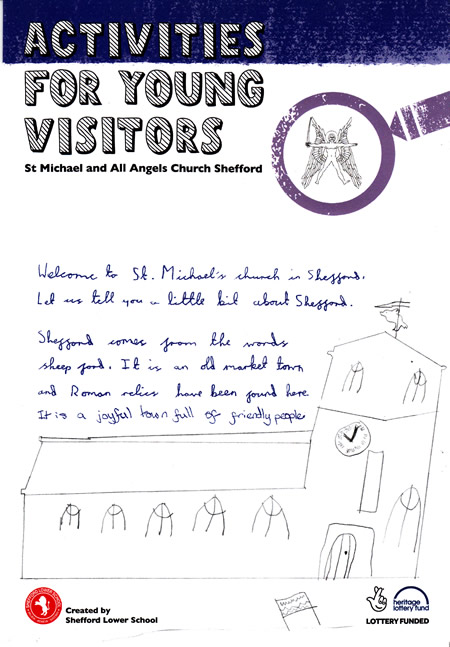 ACTIVITIES
FOR YOUNG
VISITORS
St Michael and All Angels Church Shefford
Welcome to St. Michael's church in Shefford.
Let us tell you a little bit about Shefford.
Shefford comes from the words
sheep ford. It is an old market town
and Roman relics have been found here
It is a joyful town full of friendly people
Created by
Shefford Lower School
heritage
lottery fund
LOTTERY FUNDED